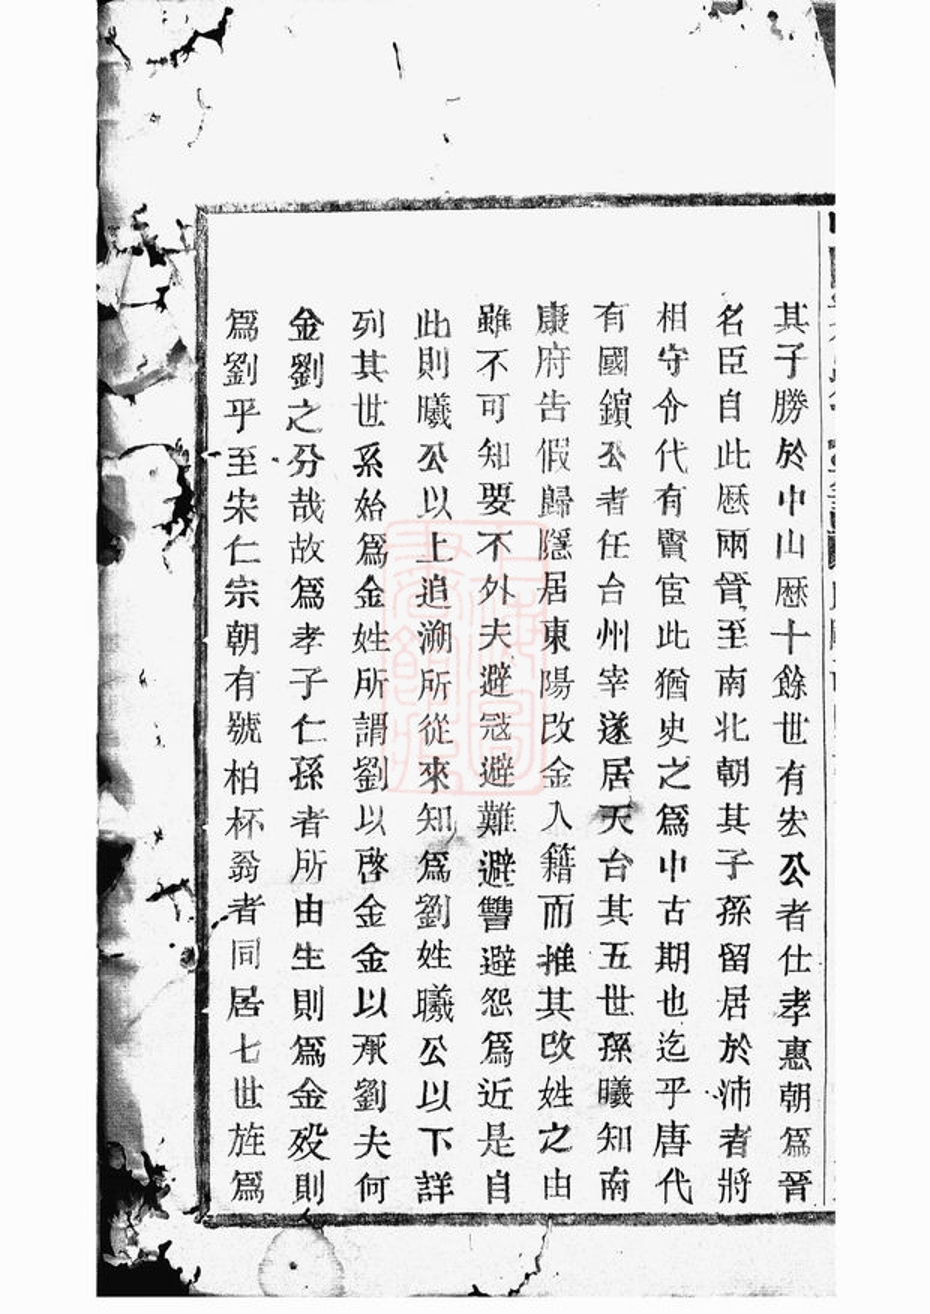 其子勝於中山厯十餘世有宏公者仕孝惠朝爲晉
名臣自此厯兩晉至南北朝其子孫留居於沛者將
相守令代有賢宦此猶史之爲中古期也迄乎唐代
有國鑌公者任台州宰遂居天台其五世孫曦知南
康府告假歸隱居東陽改金入籍而推其改姓之由
雖不可知要不外夫避冦避難避讐避怨爲近是自
此則曦公以上追溯所從來知爲劉姓曦公以下詳
列其世系始爲金姓所謂劉以啓金金以承劉夫何
金劉之分哉故爲孝子仁孫者所由生則爲金歿則
爲劉乎至宋仁宗朝有號柏杯翁者同居七世旌爲